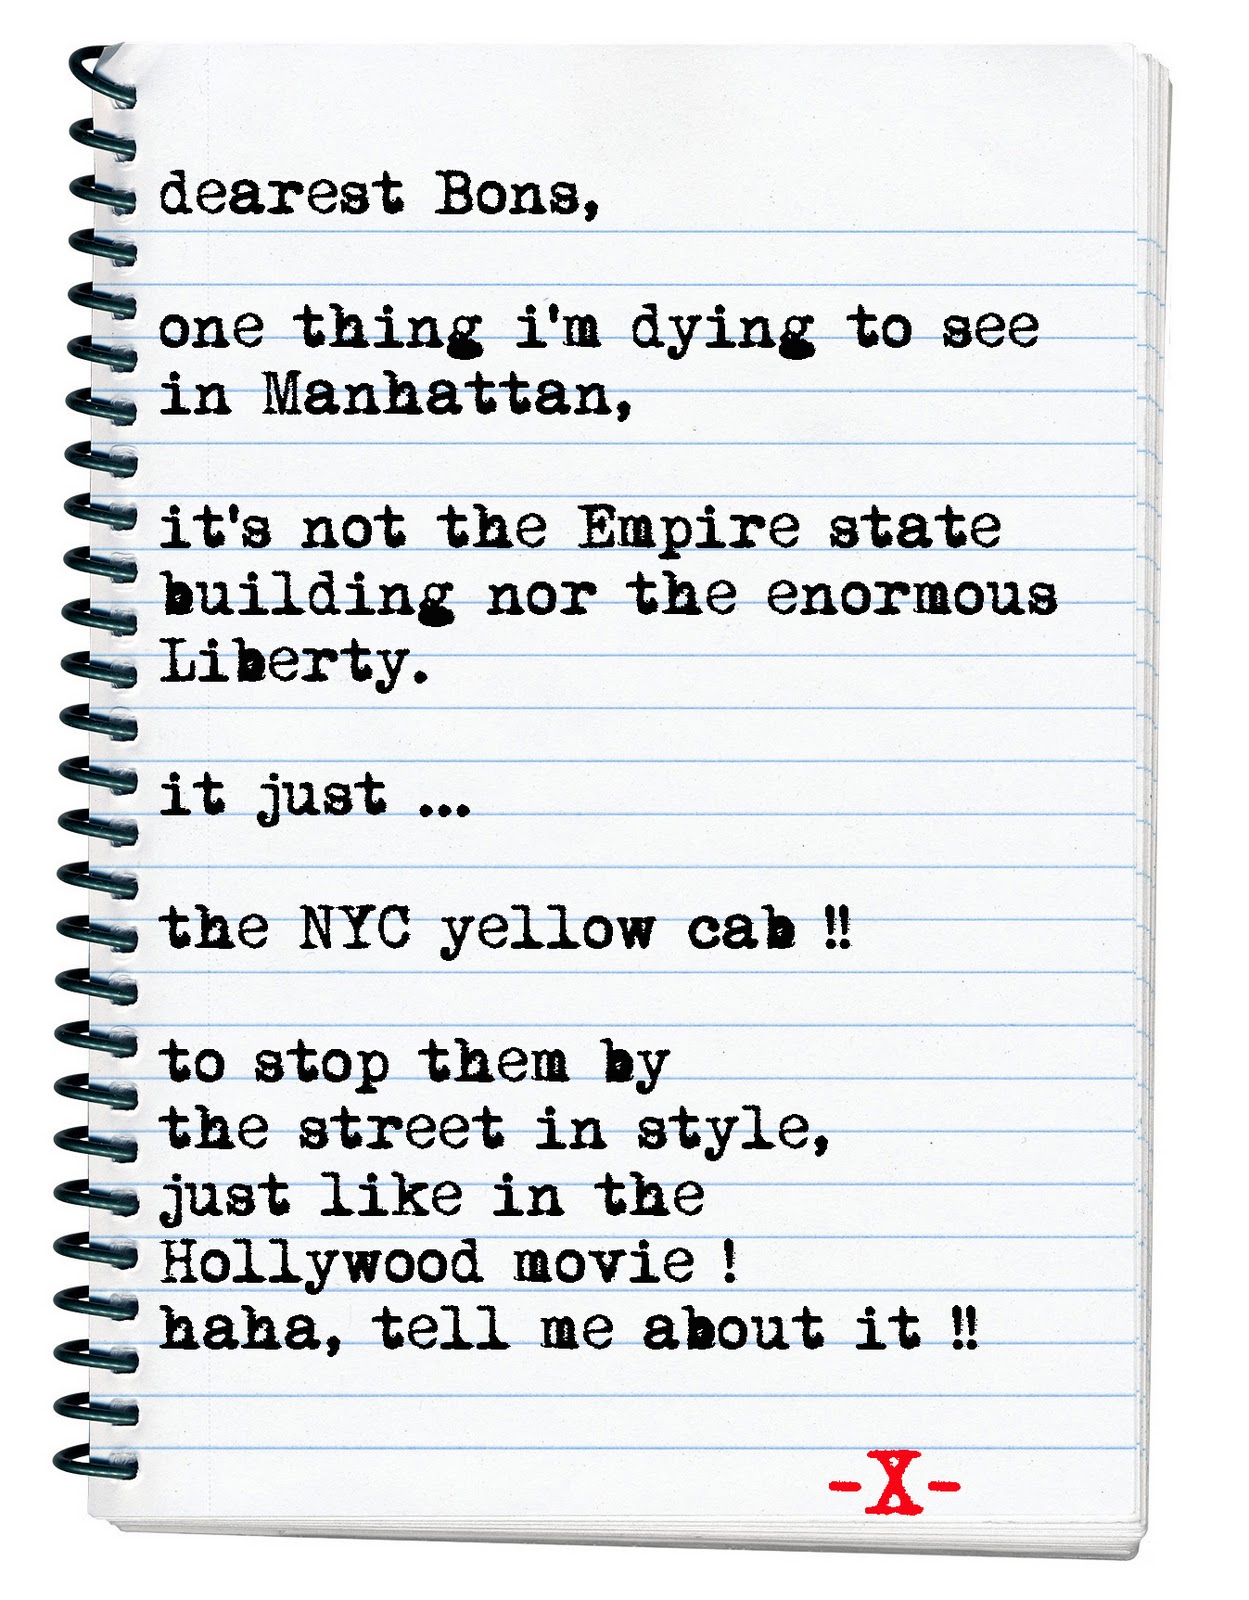 dearest Bons,
one thing i'm dying to see
in Manhattan,
it's not the Empire state
building nor the enormous
Liberty.
it just ...
the NYC yellow cab !!
to stop them by
the street in style,
just like in the
Hollywood movie !
haha, tell me about it !!
-X-